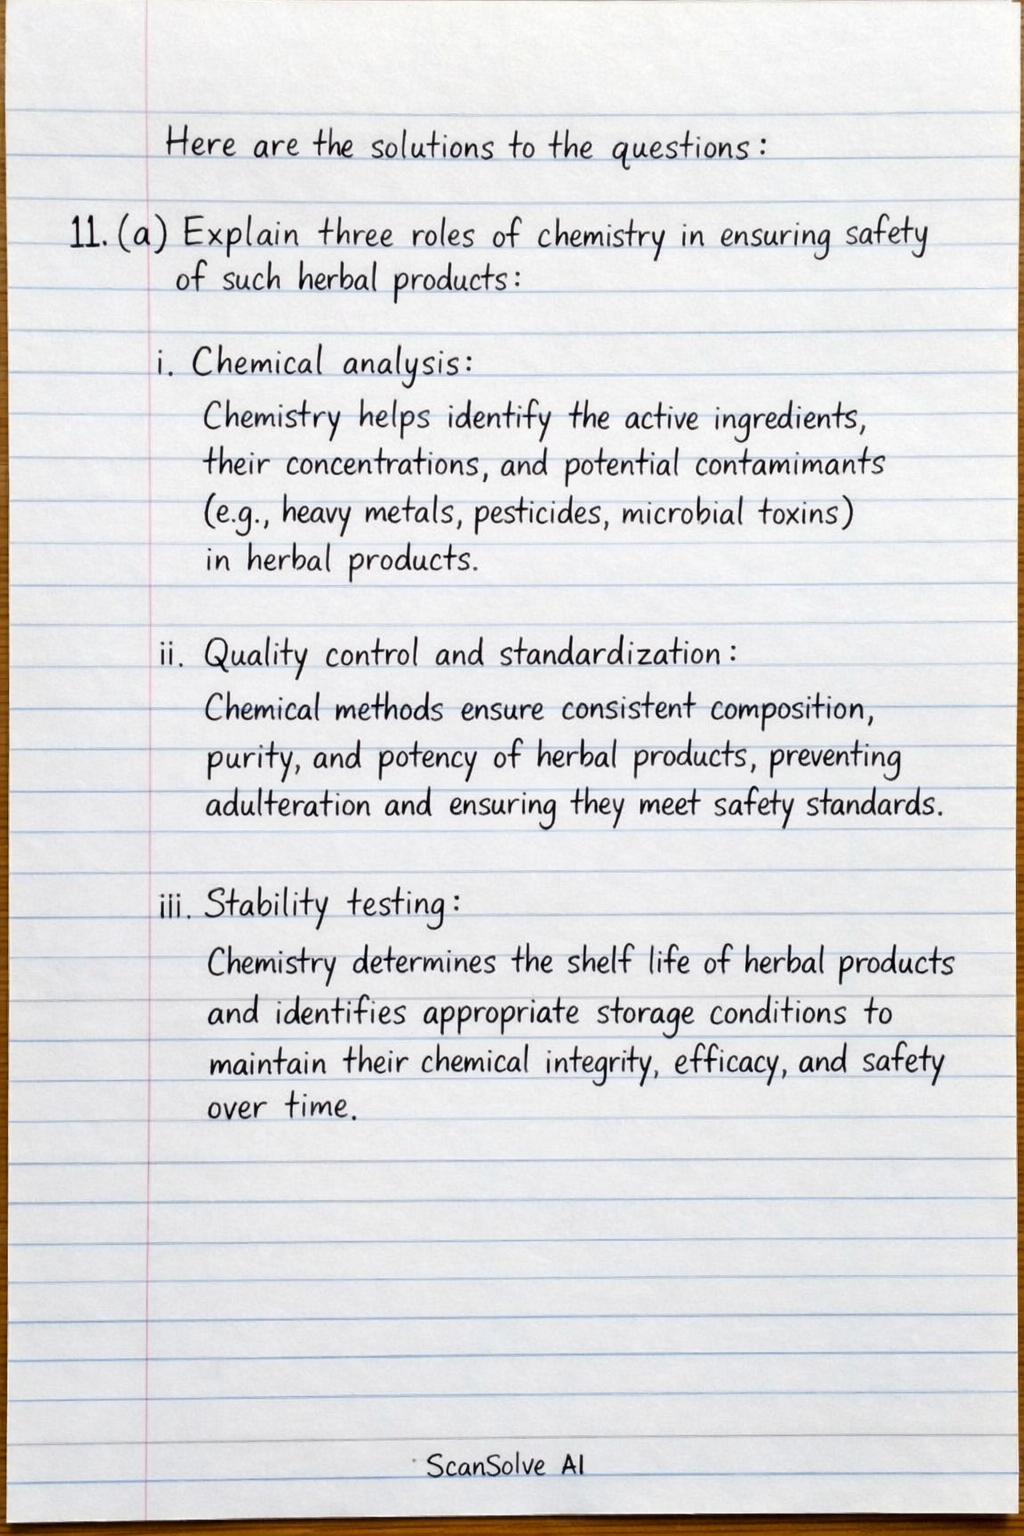 Here are the solutions to the questions:
11. (a) Explain three roles of chemistry in ensuring safety
of such herbal products:
i. Chemical analysis:
Chemistry helps identify the active ingredients,
their concentrations, and potential contamimants
(e.g., heavy metals, pesticides, microbial toxins)
in herbal products.
ii. Quality control and standardization:
Chemical methods ensure consistent composition,
purity, and potency of herbal products, preventing
adulteration and ensuring they meet safety standards.
iii. Stability testing:
Chemistry determines the shelf life of herbal products
and identifies appropriate storage conditions to
maintain their chemical integrity, efficacy, and safety
over time.
ScanSolve AI